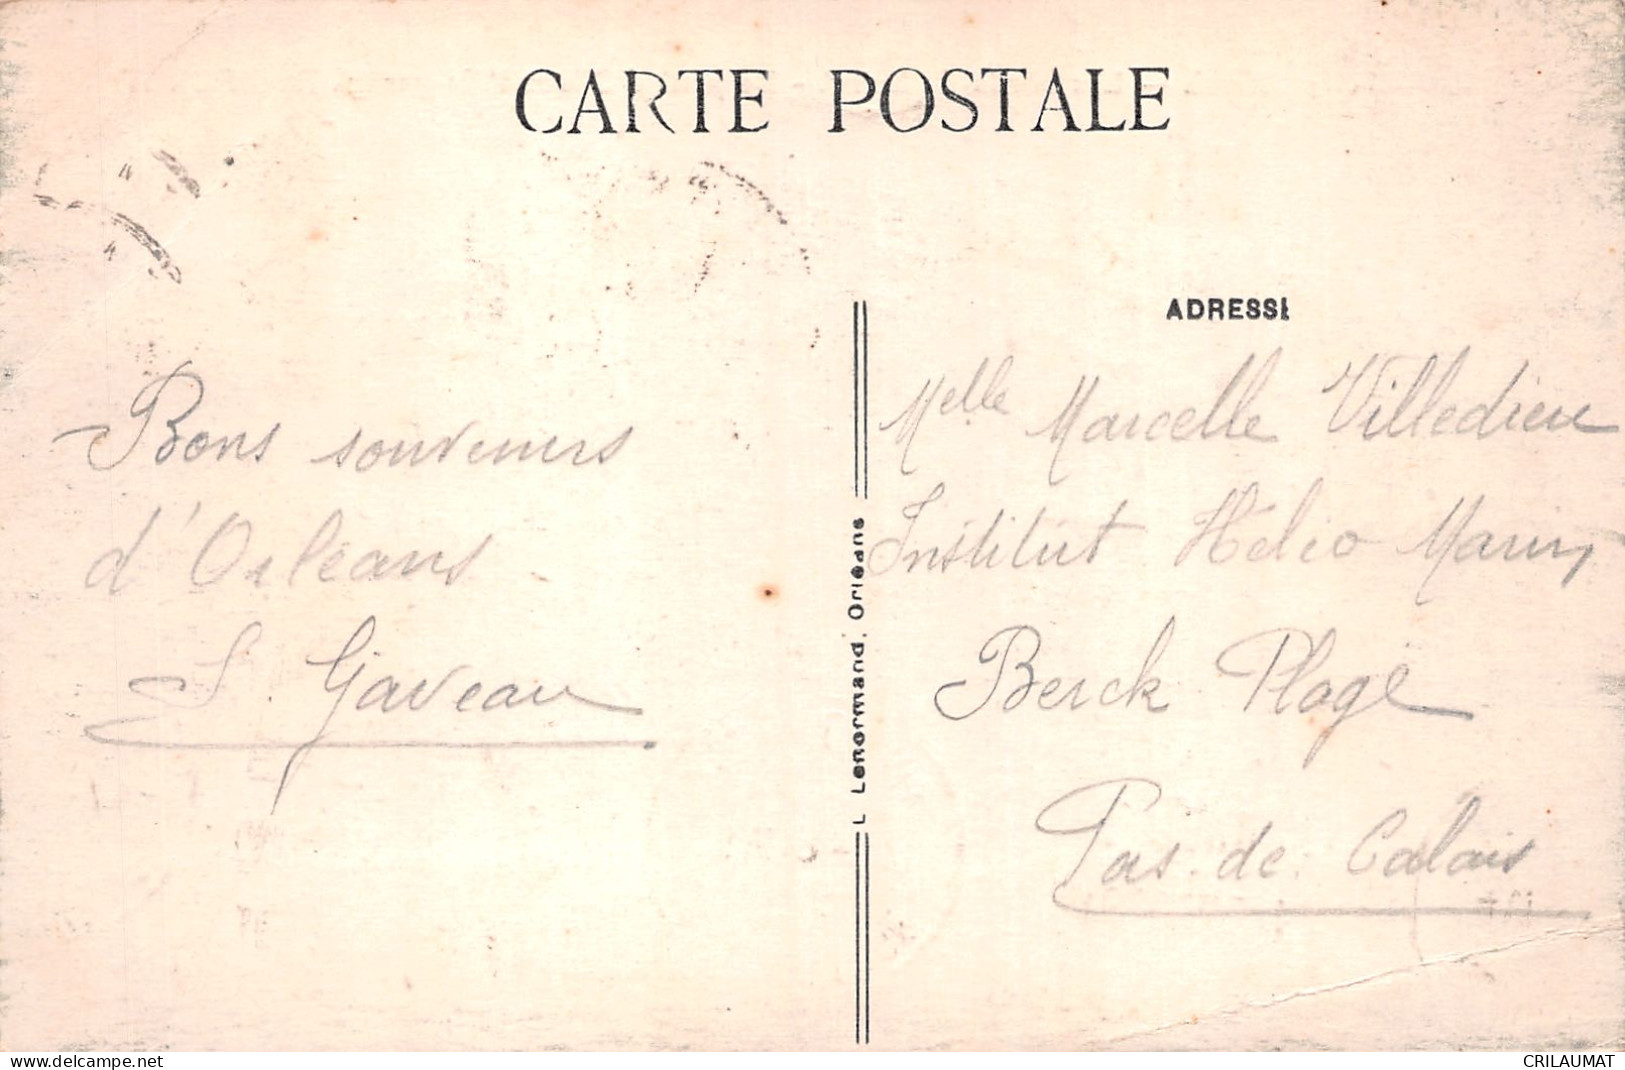 CARTE POSTALE
Bons souvenirs
d'Orléans
S. Gaveau
L Lenormand, Orléans
ADRESSE
Melle Marcelle Villedieu
Institut Hélio Marin,
Berck Plage
Pas-de-Calais
www.delcampe.net
CRILAUMAT